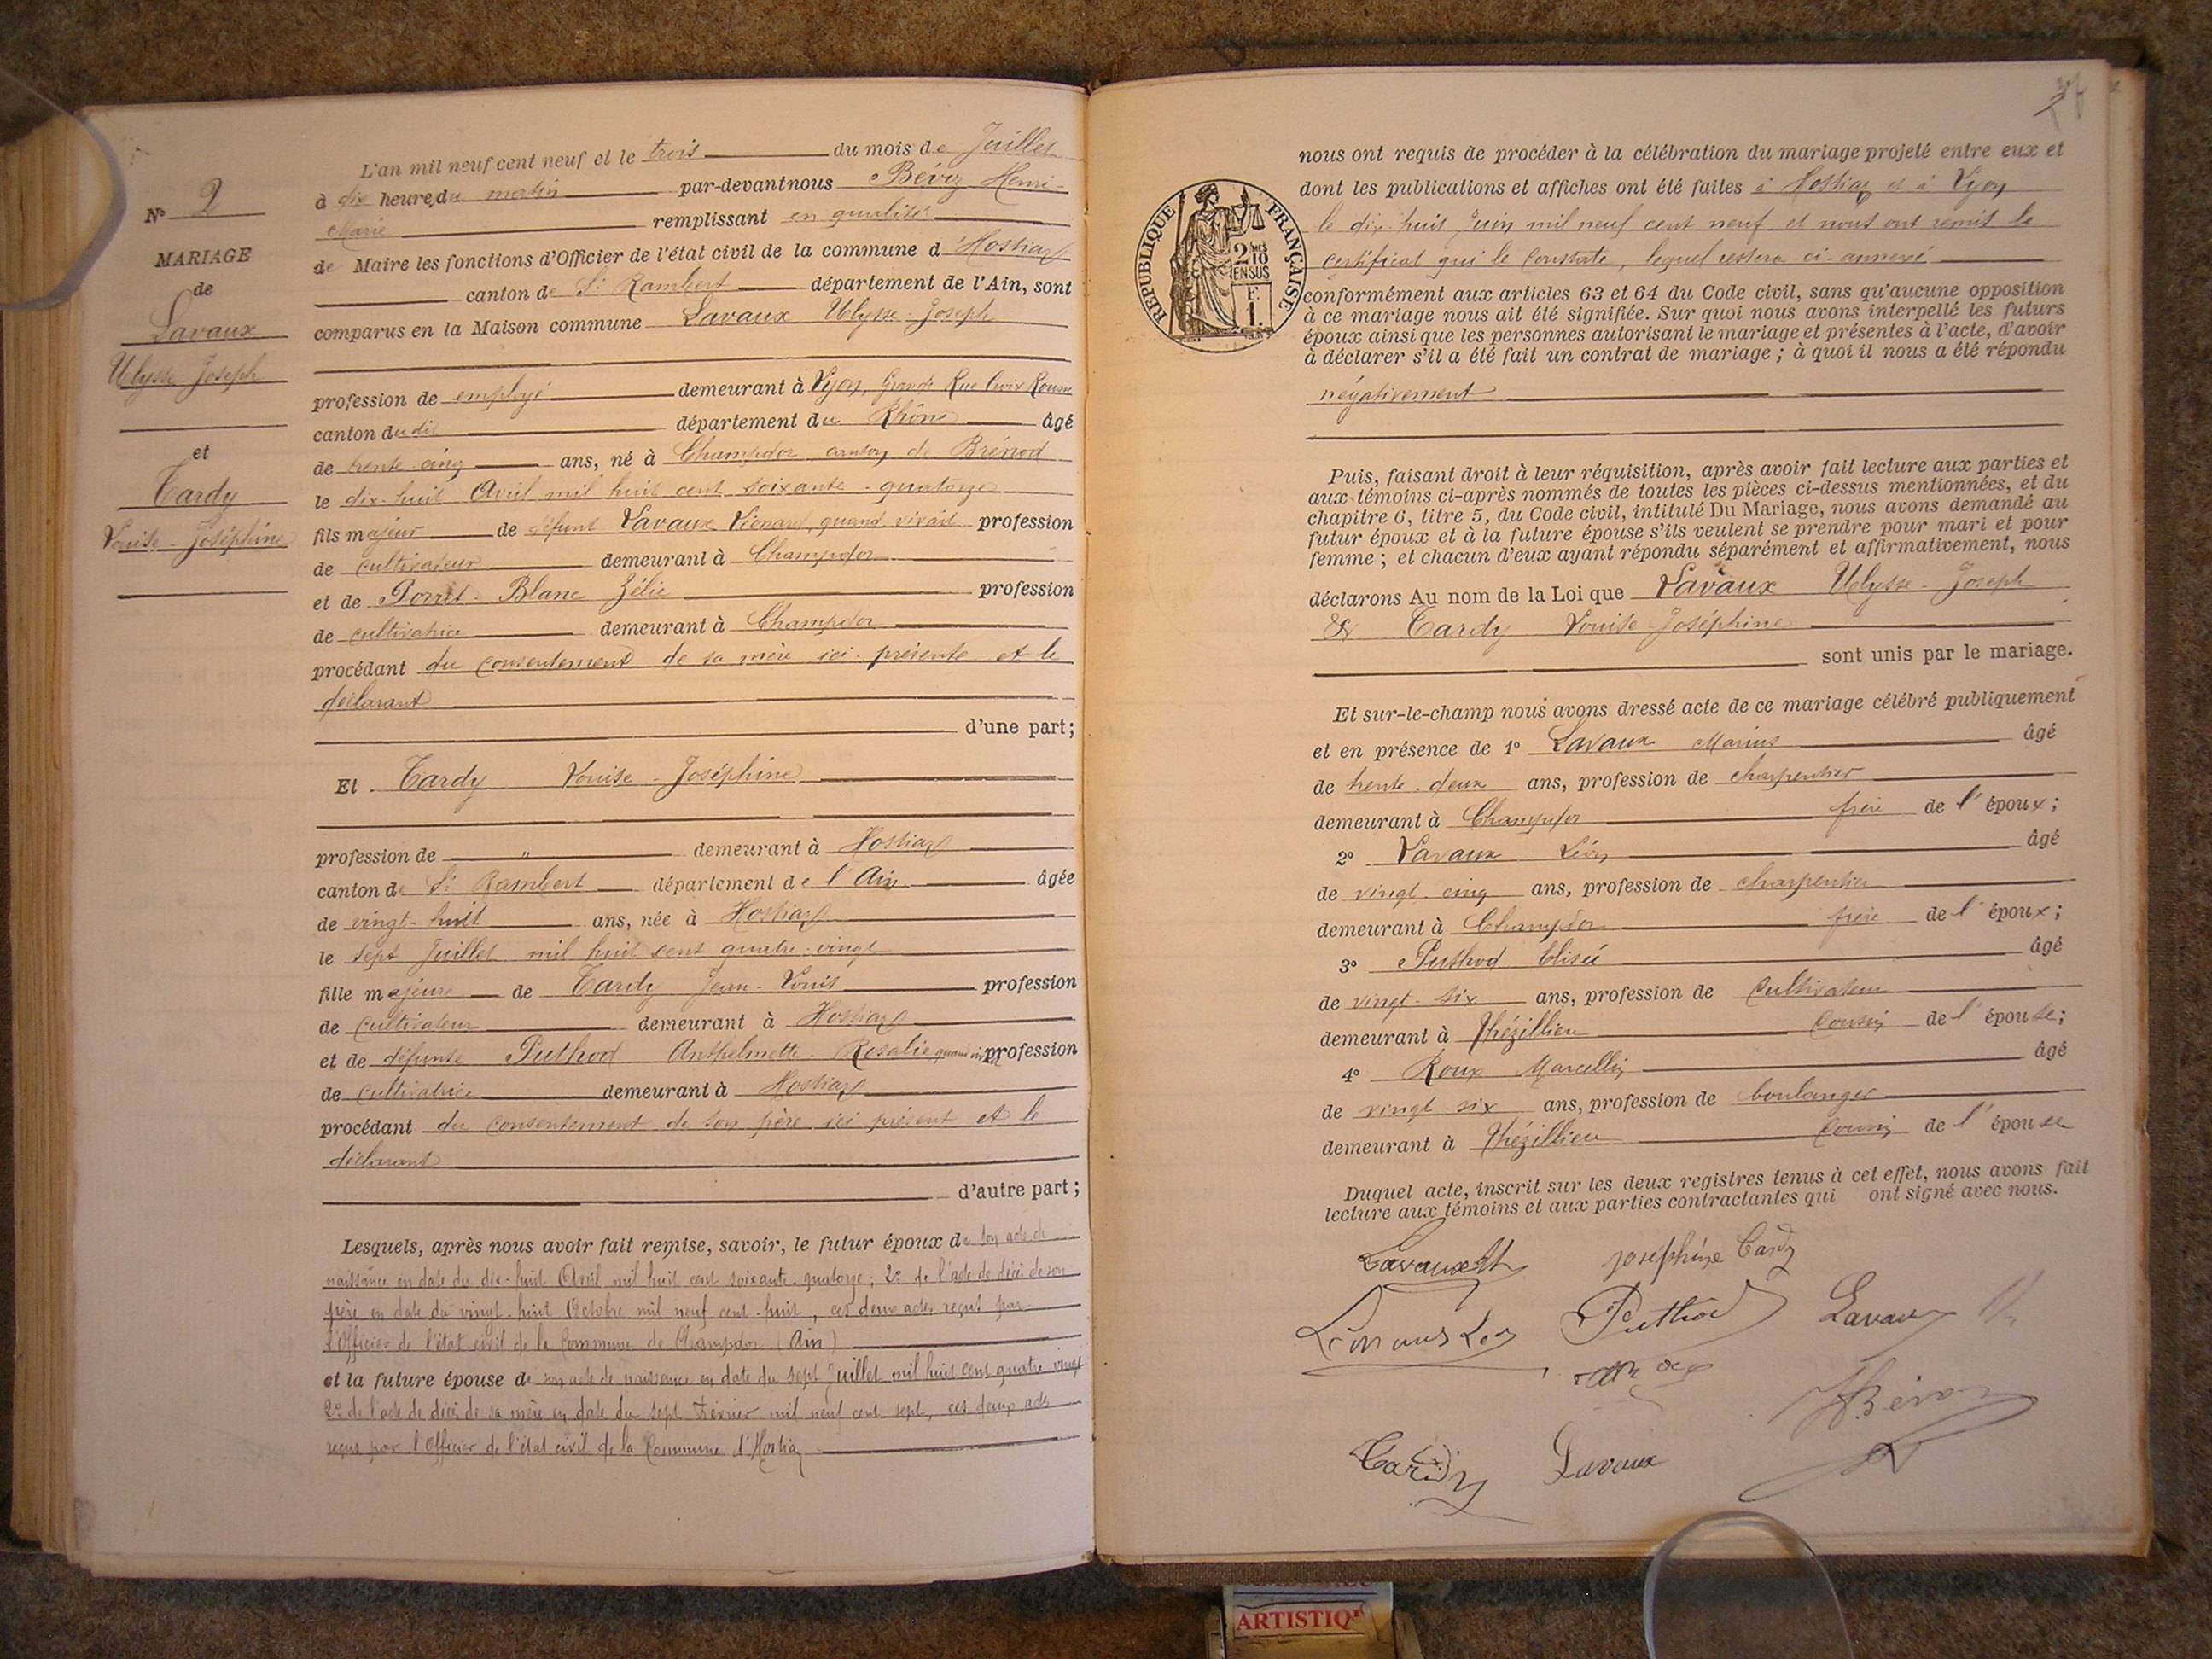 N° 2
MARIAGE
de
Lavaux
Ulysse-Joseph
et
Tardy
Louise-Joséphine
L'an mil neuf cent neuf et le trois du mois de Juillet
à dix heures du matin par-devant nous Bévoz Henri-
Marie remplissant en qualité
de Maire les fonctions d'Officier de l'état civil de la commune d'Hostiaz
canton de St Rambert département de l'Ain, sont
comparus en la Maison commune Lavaux Ulysse-Joseph
profession de employé demeurant à Lyon, Grande Rue Croix Rousse
canton du dit département du Rhône âgé
de trente cinq ans, né à Champdor canton de Brénod
le dix-huit Avril mil huit cent soixante-quatorze
fils majeur de défunt Lavaux Léonard, quand vivait profession
de cultivateur demeurant à Champdor
et de Porret-Blanc Zélie profession
de cultivatrice demeurant à Champdor
procédant du consentement de sa mère ici présente et le
déclarant
d'une part;
Et Tardy Louise-Joséphine
profession de " demeurant à Hostiaz
canton de St Rambert département de l'Ain âgée
de vingt-huit ans, née à Hostiaz
le sept Juillet mil huit cent quatre-vingt
fille majeure de Tardy Jean-Louis profession
de cultivateur demeurant à Hostiaz
et de défunte Puthod Anthelmette-Rosalie quand vivait profession
de cultivatrice demeurant à Hostiaz
procédant du consentement de son père ici présent et le
déclarant
d'autre part;
Lesquels, après nous avoir fait remise, savoir, le futur époux de son acte de
naissance en date du dix-huit Avril mil huit cent soixante-quatorze; 2° de l'acte de décès de son
père en date du vingt-huit Octobre mil neuf cent-huit, ces deux actes reçus par
l'Officier de l'état civil de la Commune de Champdor (Ain)
et la future épouse de son acte de naissance en date du sept Juillet mil huit cent quatre vingt
2° de l'acte de décès de sa mère en date du sept Février mil neuf cent sept, ces deux actes
reçus par l'Officier de l'état civil de la Commune d'Hostiaz
2
RÉPUBLIQUE FRANÇAISE
2/10
EN SUS
F.
1.
nous ont requis de procéder à la célébration du mariage projeté entre eux et
dont les publications et affiches ont été faites à Hostiaz et à Lyon
le dix-huit Juin mil neuf cent neuf et nous ont remis le
certificat qui le constate, lequel restera ci-annexé
conformément aux articles 63 et 64 du Code civil, sans qu'aucune opposition
à ce mariage nous ait été signifiée. Sur quoi nous avons interpellé les futurs
époux ainsi que les personnes autorisant le mariage et présentes à l'acte, d'avoir
à déclarer s'il a été fait un contrat de mariage; à quoi il nous a été répondu
négativement
Puis, faisant droit à leur réquisition, après avoir fait lecture aux parties et
aux témoins ci-après nommés de toutes les pièces ci-dessus mentionnées, et du
chapitre 6, titre 5, du Code civil, intitulé Du Mariage, nous avons demandé au
futur époux et à la future épouse s'ils veulent se prendre pour mari et pour
femme; et chacun d'eux ayant répondu séparément et affirmativement, nous
déclarons Au nom de la Loi que Lavaux Ulysse-Joseph
& Tardy Louise-Joséphine
sont unis par le mariage.
Et sur-le-champ nous avons dressé acte de ce mariage célébré publiquement
et en présence de 1° Lavaux Marius âgé
de trente-deux ans, profession de charpentier
demeurant à Champdor frère de l'époux;
2° Lavaux Léon âgé
de vingt-cinq ans, profession de charpentier
demeurant à Champdor frère de l'époux;
3° Puthod Elisée âgé
de vingt-six ans, profession de cultivateur
demeurant à Thézillieu cousin de l'épouse;
4° Roux Marcellin âgé
de vingt-six ans, profession de boulanger
demeurant à Thézillieu cousin de l'épouse
Duquel acte, inscrit sur les deux registres tenus à cet effet, nous avons fait
lecture aux témoins et aux parties contractantes qui ont signé avec nous.
Lavaux Joséphine Tardy
Puthod Lavaux
HBévoz
Tardy Lavaux
ARTISTIQ